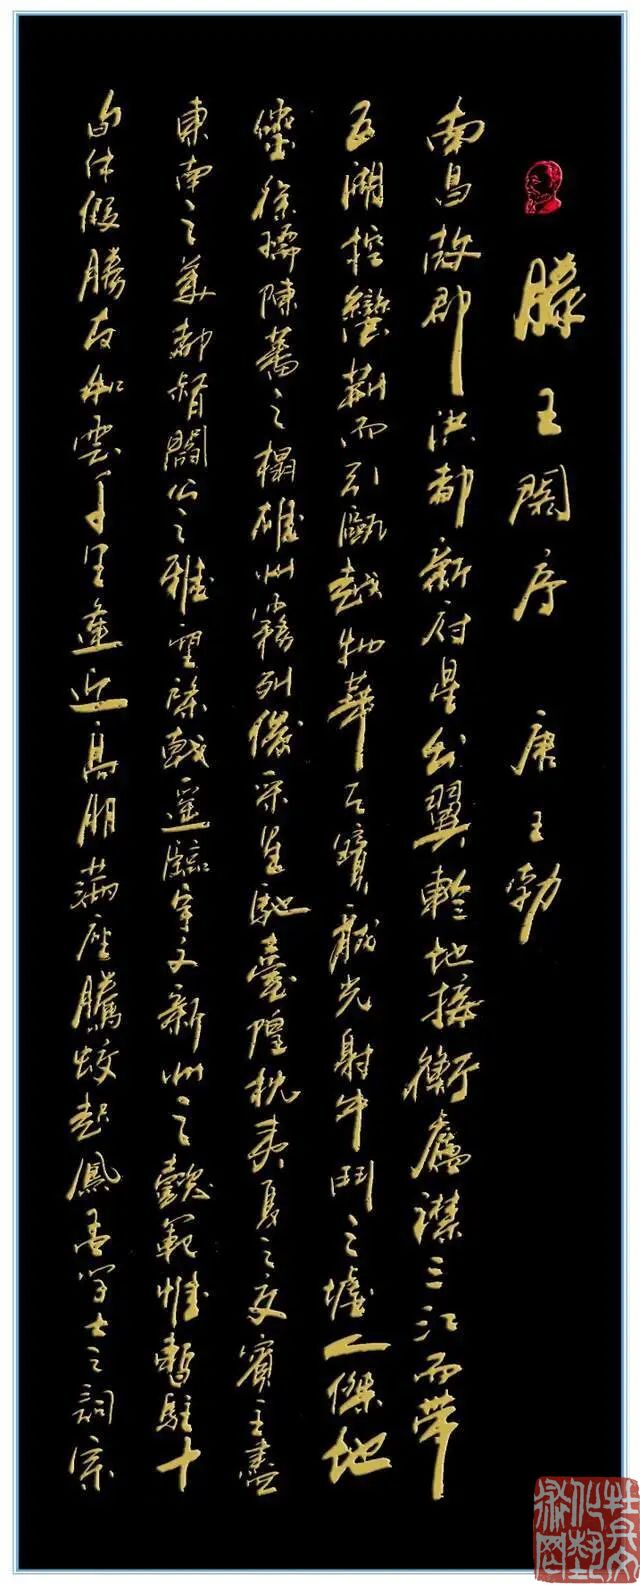 滕王閣序 唐 王勃
南昌故郡洪都新府星分翼軫地接衡廬襟三江而帶
五湖控蠻荆而引甌越物華天寶龍光射牛鬥之墟人傑地
靈徐孺陳蕃之榻雄州霧列俊采星馳臺隍枕夷夏之交賓主盡
東南之美都督閻公之雅望棨戟遥臨宇文新州之懿範惟暫駐十
旬休假勝友如雲千里逢迎高朋滿座騰蛟起鳳孟學士之詞宗